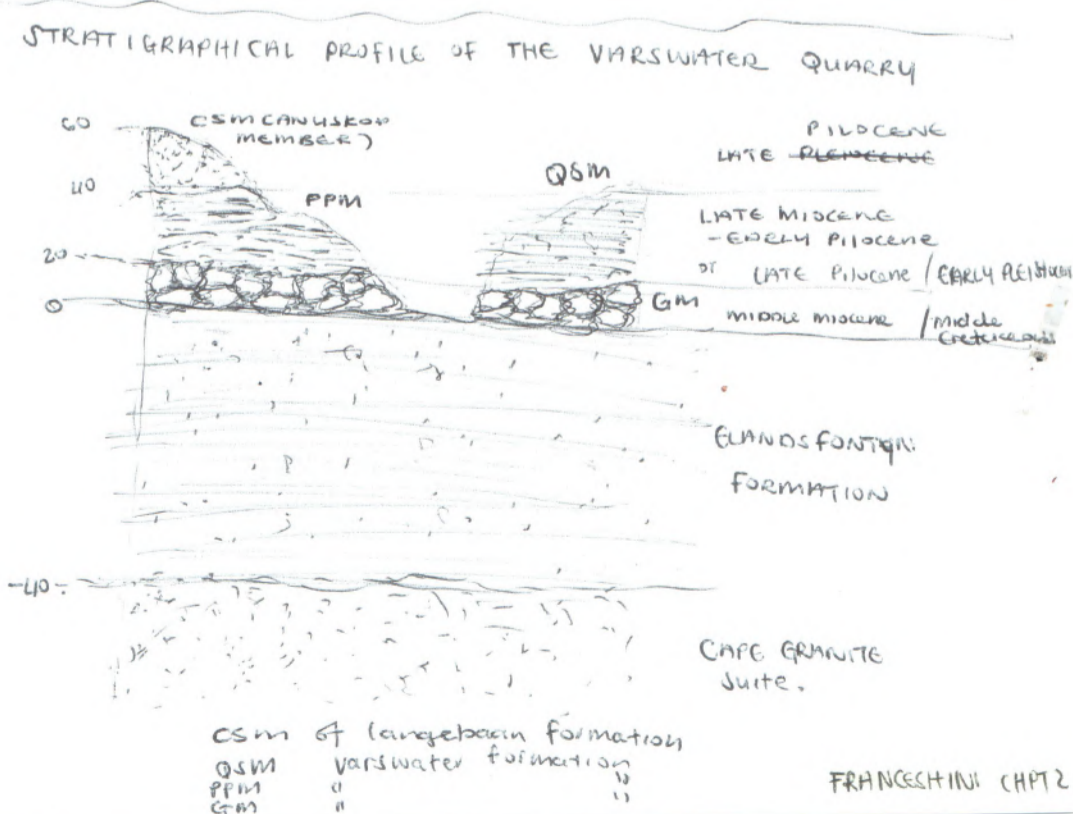 STRATIGRAPHICAL PROFILE OF THE VARSWATER QUARRY
60
CSM CANUSKOP
MEMBER)
PILOCENE
LATE PLEISOCENE
40
PPM
QSM
LATE MIOCENE
- EARLY PILOCENE
20
OT LATE PILOCENE / EARLY PLEISTOCENE
0
GM
MIDDLE MIOCENE / MIDDLE
ELANDSFONTEIN
FORMATION
-40-
CAPE GRANITE
Suite.
CSM of langebaan formation
QSM varswater formation
PPM " "
GM " "
FRANCESHINI CHPT 2